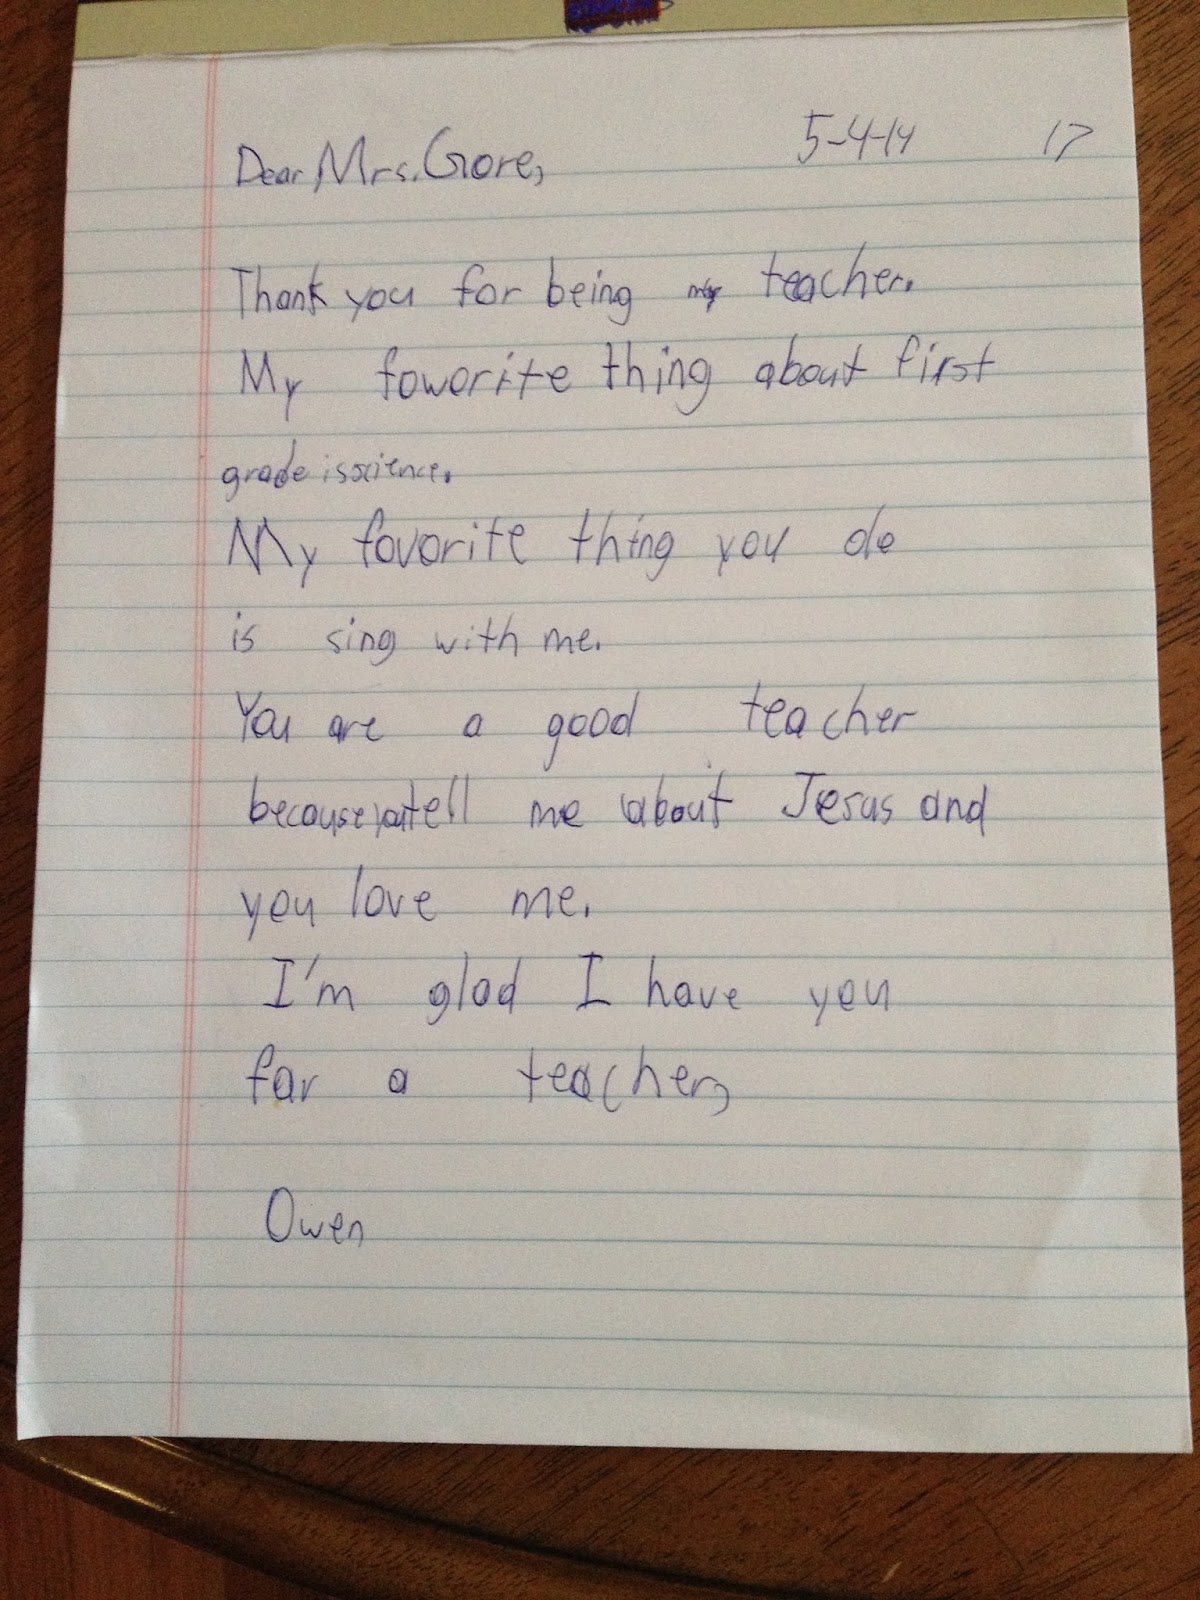 5-4-14 17
Dear Mrs. Gore,
Thank you for being my teacher.
My foworite thing about first
grade is science.
My favorite thing you do
is sing with me.
You are a good teacher
because you tell me about Jesus and
you love me.
I'm glad I have you
for a teacher,
Owen